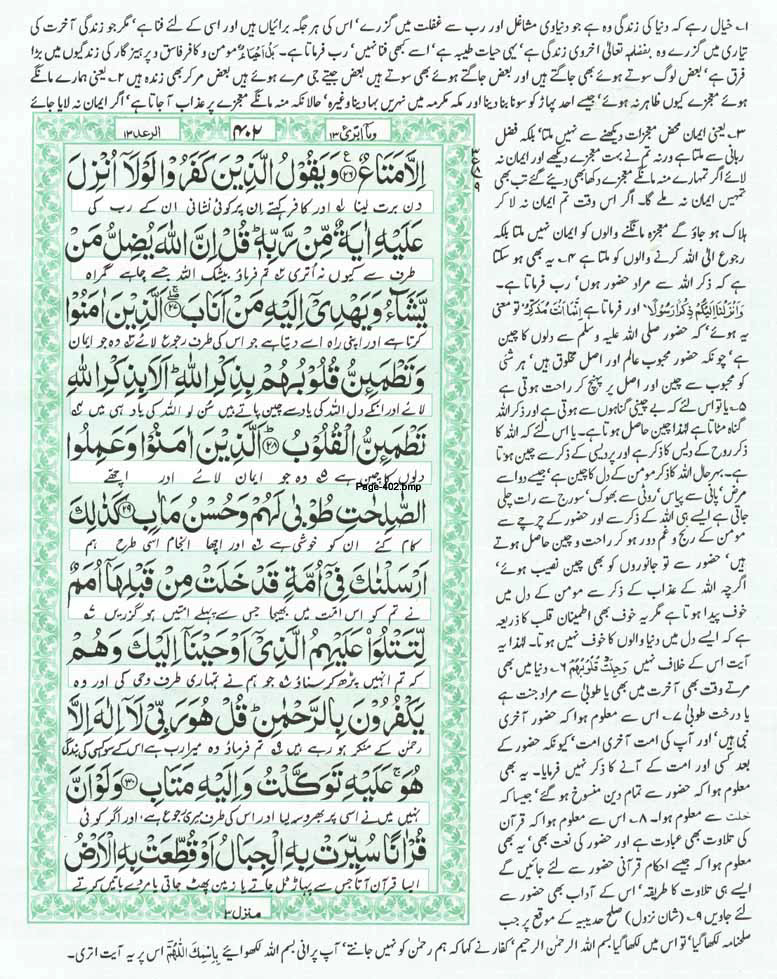 ۱۔ خیال رہے کہ دنیا کی زندگی وہ ہے جو دنیاوی مشاغل اور رب سے غفلت میں گزرے' اس کی ہر جگہ برائیاں ہیں اور اسی کے لئے فنا ہے' مگر جو زندگی آخرت کی
تیاری میں گزرے وہ بفضلہٖ تعالیٰ اخروی زندگی ہے' یہی حیات طیبہ ہے' اسے کبھی فنا نہیں' رب فرماتا ہے۔ بَلْ اَحْیَاءٌ مومن و کافر فاسق و پرہیز گار کی زندگیوں میں بڑا
فرق ہے' بعض لوگ سوتے ہوئے بھی جاگتے ہیں اور بعض جاگتے ہوئے بھی سوتے ہیں بعض جیتے جی مرے ہوئے ہیں بعض مر کر بھی زندہ ہیں ۲۔ یعنی ہمارے مانگے
ہوئے معجزے کیوں ظاہر نہ ہوئے' جیسے احد پہاڑ کو سونا بنا دینا اور مکہ مکرمہ میں نہریں بہا دینا وغیرہ' حالانکہ منہ مانگے معجزے پر عذاب آ جاتا ہے' اگر ایمان نہ لایا جائے
وما ابرئ ۱۳
۴۰۲
الرعد ۱۳
اِلَّا مَتَاعٌ ﴿۲۶﴾ وَیَقُوْلُ الَّذِیْنَ كَفَرُوْا لَوْلَاۤ اُنْزِلَ
دن برت لینا اور کافر کہتے ان پر کوئی نشانی ان کے رب کی
عَلَیْهِ اٰیَةٌ مِّنْ رَّبِّهٖ ؕ قُلْ اِنَّ اللّٰهَ یُضِلُّ مَنْ
طرف سے کیوں نہ اتری تم فرماؤ بیشک اللہ جسے چاہے گمراہ
یَّشَآءُ وَیَهْدِیْۤ اِلَیْهِ مَنْ اَنَابَ ﴿۲۷﴾ اَلَّذِیْنَ اٰمَنُوْا
کرتا ہے اور اپنی راہ اسے دیتا ہے جو اس کی طرف رجوع لائے وہ جو ایمان
وَتَطْمَىِٕنُّ قُلُوْبُهُمْ بِذِكْرِ اللّٰهِ ؕ اَلَا بِذِكْرِ اللّٰهِ
لائے اور انکے دل اللہ کی یاد سے چین پاتے ہیں سن لو اللہ کی یاد ہی میں
تَطْمَىِٕنُّ الْقُلُوْبُ ﴿۲۸﴾ اَلَّذِیْنَ اٰمَنُوْا وَعَمِلُوا
دلوں کا چین ہے وہ جو ایمان لائے اور اچھے
Page-402.bmp
الصّٰلِحٰتِ طُوْبٰی لَهُمْ وَحُسْنُ مَاٰبٍ ﴿۲۹﴾ كَذٰلِكَ
کام کئے ان کو خوشی ہے اور اچھا انجام اسی طرح ہم
اَرْسَلْنٰكَ فِیْۤ اُمَّةٍ قَدْ خَلَتْ مِنْ قَبْلِهَاۤ اُمَمٌ
نے تم کو اس امت میں بھیجا جس سے پہلے امتیں ہو گزریں
لِّتَتْلُوَاۡ عَلَیْهِمُ الَّذِیْۤ اَوْحَیْنَاۤ اِلَیْكَ وَهُمْ
کہ تم انہیں پڑھ کر سناؤ جو ہم نے تمہاری طرف وحی کی اور وہ
یَكْفُرُوْنَ بِالرَّحْمٰنِ ؕ قُلْ هُوَ رَبِّیْ لَاۤ اِلٰهَ اِلَّا
رحمٰن کے منکر ہو رہے ہیں تم فرماؤ وہ میرا رب ہے اس کے سوا کسی کی بندگی
هُوَ ۚ عَلَیْهِ تَوَكَّلْتُ وَاِلَیْهِ مَتَابِ ﴿۳۰﴾ وَلَوْ اَنَّ
نہیں میں نے اسی پر بھروسہ کیا اور اس کی طرف میری رجوع ہے اور اگر کوئی
قُرْاٰنًا سُیِّرَتْ بِهِ الْجِبَالُ اَوْ قُطِّعَتْ بِهِ الْاَرْضُ
ایسا قرآن آتا جس سے پہاڑ ٹل جاتے یا زمین پھٹ جاتی یا مردے باتیں کرتے
منزل ۳
۳۔ یعنی ایمان محض معجزات دیکھنے سے نہیں ملتا' بلکہ فضل
ربانی سے ملتا ہے ورنہ تم نے بہت معجزے دیکھے اور ایمان نہ
لائے اگر تمہارے منہ مانگے معجزے دکھا بھی دیئے گئے تب بھی
تمہیں ایمان نہ ملے گا۔ اگر اس وقت تم ایمان نہ لا کر
ہلاک ہو جاؤ گے معجزہ مانگنے والوں کو ایمان نہیں ملتا بلکہ
رجوع الی اللہ کرنے والوں کو ملتا ہے ۴۔ یہ بھی ہو سکتا
ہے کہ ذکر اللہ سے مراد حضور ہوں' رب فرماتا ہے۔
وَاَنْزَلْنَا اِلَیْكُمْ ذِكْرًا رَّسُوْلًا' اور فرماتا ہے اِنَّمَا اَنْتَ مُذَكِّرٌ تو معنی
یہ ہوئے' کہ حضور صلی اللہ علیہ وسلم سے دلوں کا چین
ہے' چونکہ حضور محبوب عالم اور اصل مخلوق ہیں' ہر شئی
کو محبوب سے چین اور اصل پر پہنچ کر راحت ہوتی ہے
۵۔ یا تو اس لئے کہ بے چینی گناہوں سے ہوتی ہے اور ذکر اللہ
گناہ مٹاتا ہے لہٰذا چین حاصل ہوتا ہے۔ یا اس لئے کہ اللہ کا
ذکر روح کے دیس کا ذکر ہے اور پردیسی کے ذکر سے چین ہوتا
ہے۔ بہرحال اللہ کا ذکر مومن کے دل کا چین ہے' جیسے دوا سے
مرض' پانی سے پیاس' روٹی سے بھوک' سورج سے رات چلی
جاتی ہے ایسے ہی اللہ کے ذکر سے اور حضور کے چرچے سے
مومن کے رنج و غم دور ہو کر راحت و چین حاصل ہوتے
ہیں' حضور سے تو جانوروں کو بھی چین نصیب ہوئے'
اگرچہ اللہ کے عذاب کے ذکر سے مومن کے دل میں
خوف پیدا ہوتا ہے مگر یہ خوف بھی اطمینان قلب کا ذریعہ
ہے کہ ایسے دل میں دنیا والوں کا خوف نہیں ہوتا۔ لہٰذا یہ
آیت اس کے خلاف نہیں وَجِلَتْ قُلُوْبُهُمْ ۶۔ دنیا میں بھی
مرتے وقت بھی آخرت میں بھی یا طوبیٰ سے مراد جنت ہے
یا درخت طوبیٰ ۷۔ اس سے معلوم ہوا کہ حضور آخری
نبی ہیں' اور آپ کی امت آخری امت' کیونکہ حضور کے
بعد کسی اور امت کے آنے کا ذکر نہیں فرمایا۔ یہ بھی
معلوم ہوا کہ حضور سے تمام دین منسوخ ہو گئے' جیسا کہ
خلت سے معلوم ہوا۔ ۸۔ اس سے معلوم ہوا کہ قرآن
کی تلاوت بھی عبادت ہے اور حضور کی نعت بھی' یہ بھی
معلوم ہوا کہ جیسے احکام قرآنی حضور سے لئے جائیں گے
ایسے ہی تلاوت کا طریقہ' اس کے آداب بھی حضور سے
لئے جاویں ۹۔ (شان نزول) صلح حدیبیہ کے موقع پر جب
صلحنامہ لکھا گیا' تو اس میں لکھا گیا بسم اللہ الرحمٰن الرحیم' کفار نے کہا کہ ہم رحمٰن کو نہیں جانتے' آپ پرانی بسم اللہ لکھوائیے بِاسْمِكَ اللّٰهُمَّ اس پر یہ آیت اتری۔